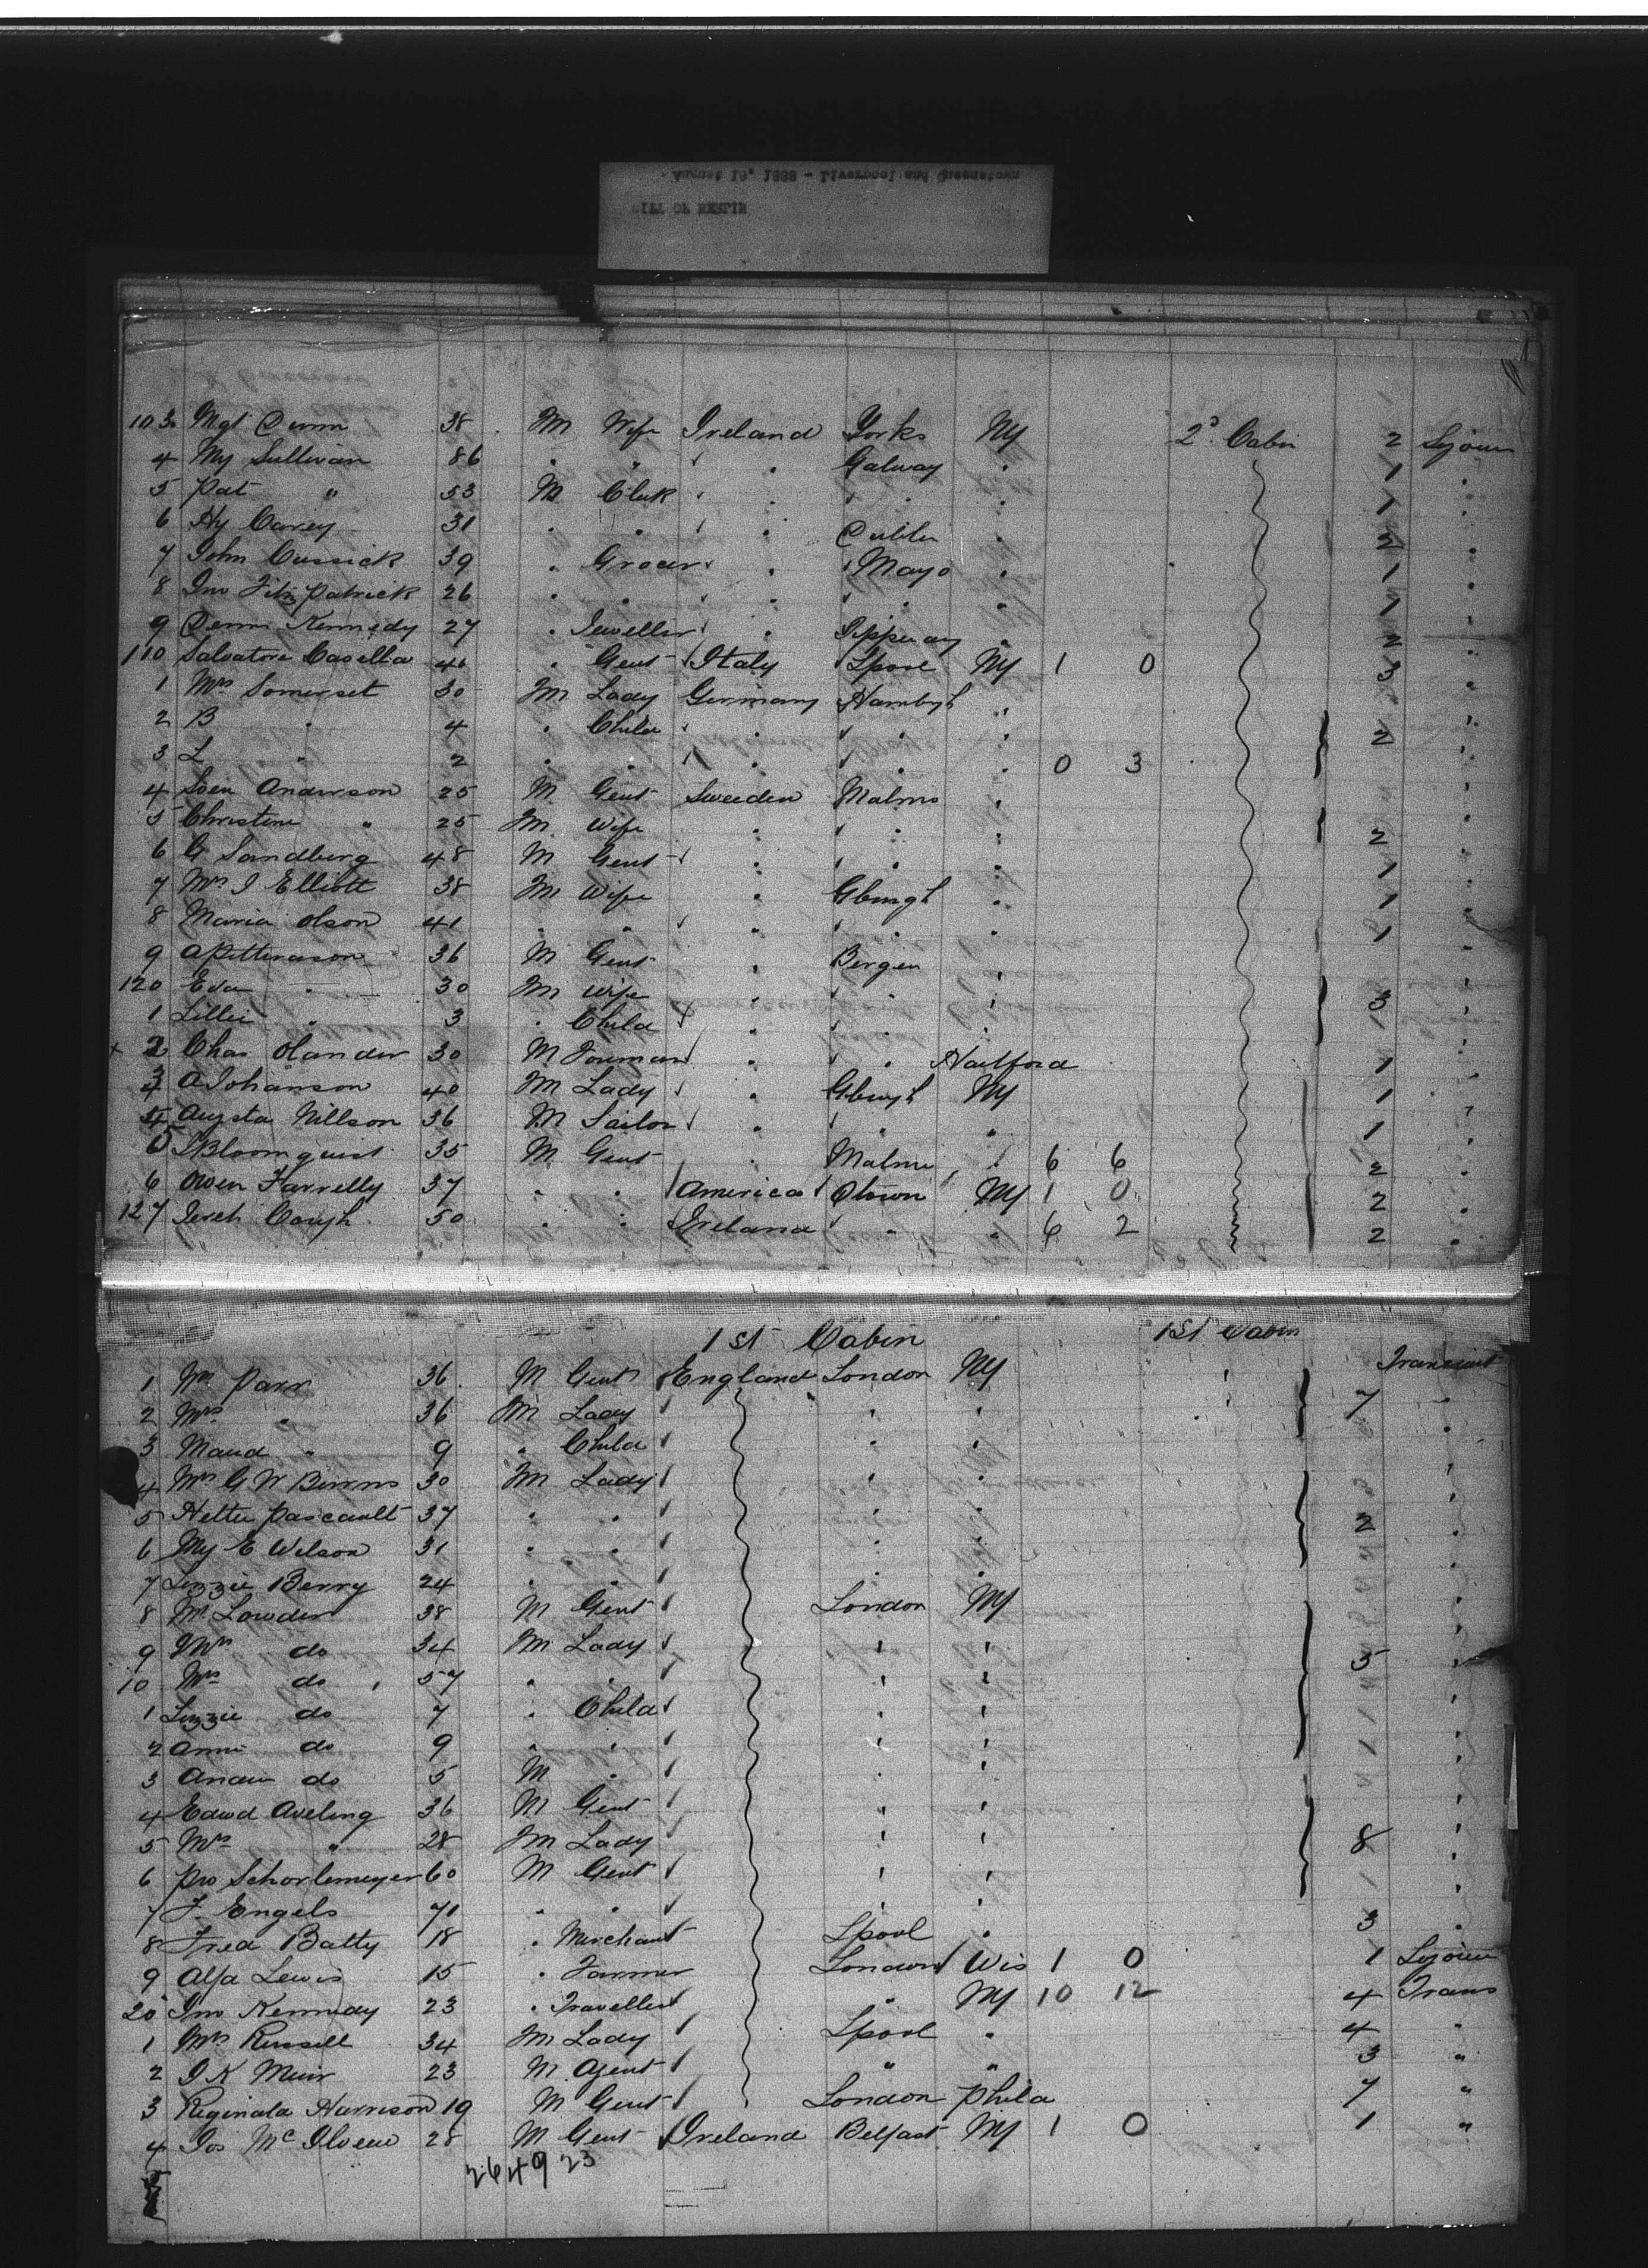 August 16, 1888 - Liverpool and Queenstown
CITY OF BERLIN
103 Mgt Dunn 38 M Wife Ireland Yorks NY 2d Cabin 2 Sojour
4 My Sullivan 86 " " " Galway " 1 "
5 Pat " 53 M Clerk " " " 1 "
6 Hy Carey 31 " " " Dublin " 2 "
7 John Cussick 39 " Grocer " Mayo " 1 "
8 Jno Fitzpatrick 26 " " " " " 1 "
9 Denni Kennedy 27 " Jeweller " Tipperary " 2 "
110 Salvatore Casella 41 " Gent Italy Lpool NY 1 0 3 "
1 Mrs Somerset 30 M Lady Germany Hambgh "
2 B " 4 " Child " " " 2 "
3 L " 2 " " " " " 0 3 "
4 Sven Anderson 25 M Gent Sweeden Malmo " "
5 Christine " 25 M Wife " " " 2 "
6 G Sandberg 48 M Gent " " " 1 "
7 Mrs J Elliott 38 M Wife " Gbungh " 1 "
8 Maria Olson 41 " " " " " 1 "
9 A Petterason 36 M Gent " Bergen " "
120 Eda " 30 M Wife " " " 3 "
1 Lillie " 3 " Child " " " "
2 Chas Olander 30 M Foreman " " Hartford 1 "
3 A Johanson 40 M Lady " Gburgh NY 1 "
4 Augsta Nillson 36 M Sailor " " " 1 "
5 Bloomquist 35 M Gent " Malmo " 6 6 2 "
6 Owen Farrelly 37 " " America Qtown NY 1 0 2 "
127 50 " " Ireland " " 6 2 2 "
1st Cabin 1st Cabin
Transient
1 Mr Parr 36 M Gent England London NY 7 "
2 Mrs " 36 M Lady " " "
3 Maud " 9 " Child " " "
4 Mrs G W Binns 30 M Lady " " "
5 Hettie Pascault 37 " " " " 2 "
6 My E Wilson 31 " " " " "
7 Lizzie Berry 24 " " " " "
8 Mr Lowder 38 M Gent London NY "
9 Mrs do 34 M Lady " " 5 "
10 Mrs do 57 " " " " "
1 Lizzie do 7 " Child " " "
2 Annie do 9 " " " " "
3 Andw do 5 M " " " "
4 Edwd Aveling 36 M Gent " " "
5 Mrs " 28 M Lady " " 8 "
6 Pro Schorlemeyer 60 M Gent " " "
7 F. Engels 71 " " " " 3 "
8 Fred Batty 18 " Merchant Lpool "
9 Alfa Lewis 15 " Farmer London Wis 1 0 1 Sojour
20 Jno Kennedy 23 " Traveller " NY 10 12 4 Trans
1 Mrs Russell 34 M Lady Lpool " 4 "
2 J K Muir 23 M Agent " " 3 "
3 Reginald Harrison 19 M Gent London Phila 7 "
4 Jos McIlveen 28 M Gent Ireland Belfast NY 1 0 1 "
264923